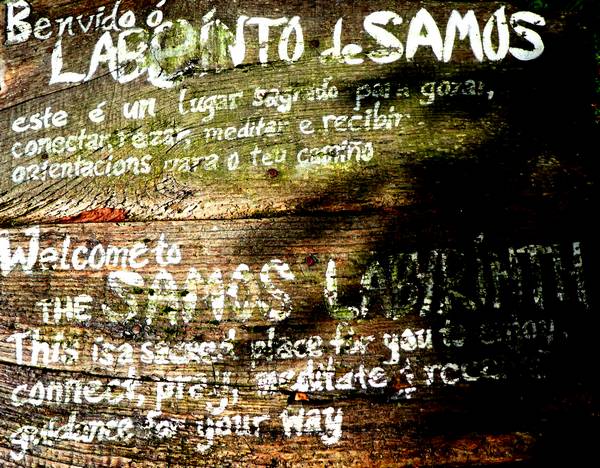 Benvido ó
LABOÍNTO de SAMOS
este é un lugar sagrado para gozar,
conectar, rezar, meditar e recibir
orientacions para o teu camiño
Welcome to
THE SAMOS LABYRÍNTH
This is a sacred place for you to enjoy,
connect, pray, meditate &
guidance for your way